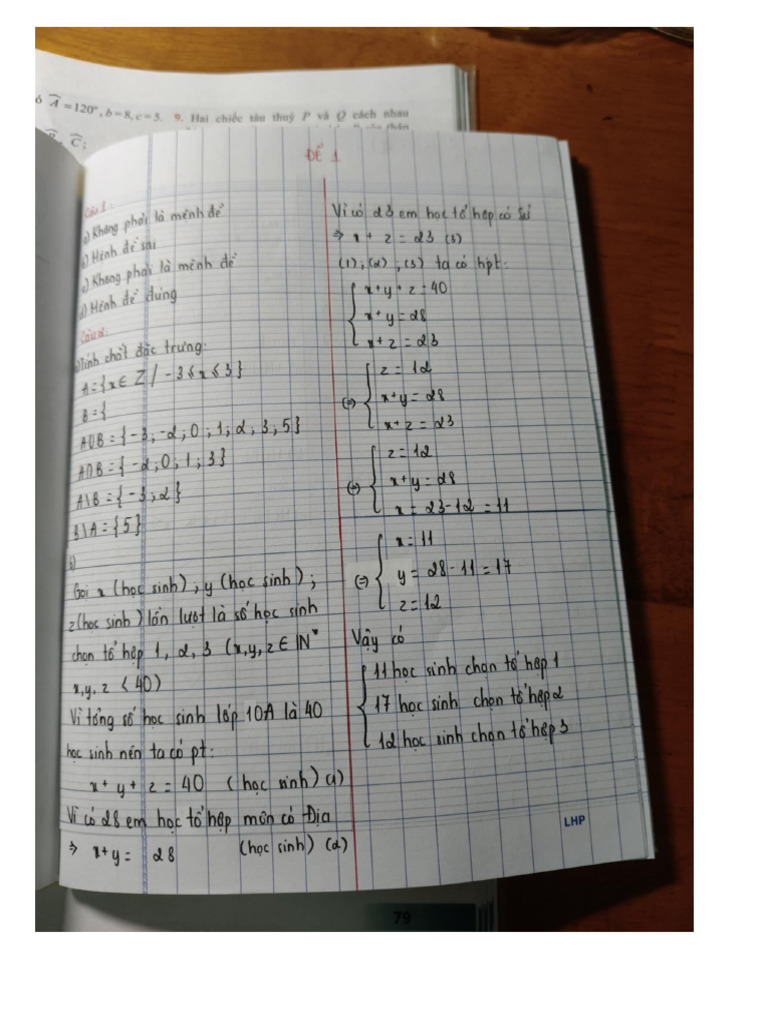 ó Â = 120°, b = 8, c = 3. 9. Hai chiếc tàu thuỷ P và Q cách nhau
Ĉ;
ĐỀ 1
Câu 1:
a) Không phải là mệnh đề
b) Mệnh đề sai
c) Không phải là mệnh đề
d) Mệnh đề đúng
Câu 2:
a) Tính chất đặc trưng:
A = {x ∈ Z / -3 ≤ x ≤ 3}
B = {
A∪B = {-3; -2; 0; 1; 2; 3; 5}
A∩B = {-2; 0; 1; 3}
A\B = {-3; 2}
B\A = {5}
b)
Gọi x (học sinh), y (học sinh);
z (học sinh) lần lượt là số học sinh
chọn tổ hợp 1, 2, 3 (x,y,z ∈ IN*
x,y,z < 40)
Vì tổng số học sinh lớp 10A là 40
học sinh nên ta có pt:
x + y + z = 40 (học sinh) (1)
Vì có 28 em học tổ hợp môn có Địa
⇒ x+y = 28 (học sinh) (2)
Vì có 23 em học tổ hợp có Sử
⇒ x + z = 23 (3)
(1), (2), (3) ta có hpt:
{ x+y+z = 40
x+y = 28
x+z = 23
(=) { z = 12
x+y = 28
x+z = 23
(=) { z = 12
x+y = 28
x = 23-12 = 11
(=) { x = 11
y = 28-11 = 17
z = 12
Vậy có
{ 11 học sinh chọn tổ hợp 1
17 học sinh chọn tổ hợp 2
12 học sinh chọn tổ hợp 3
LHP
79